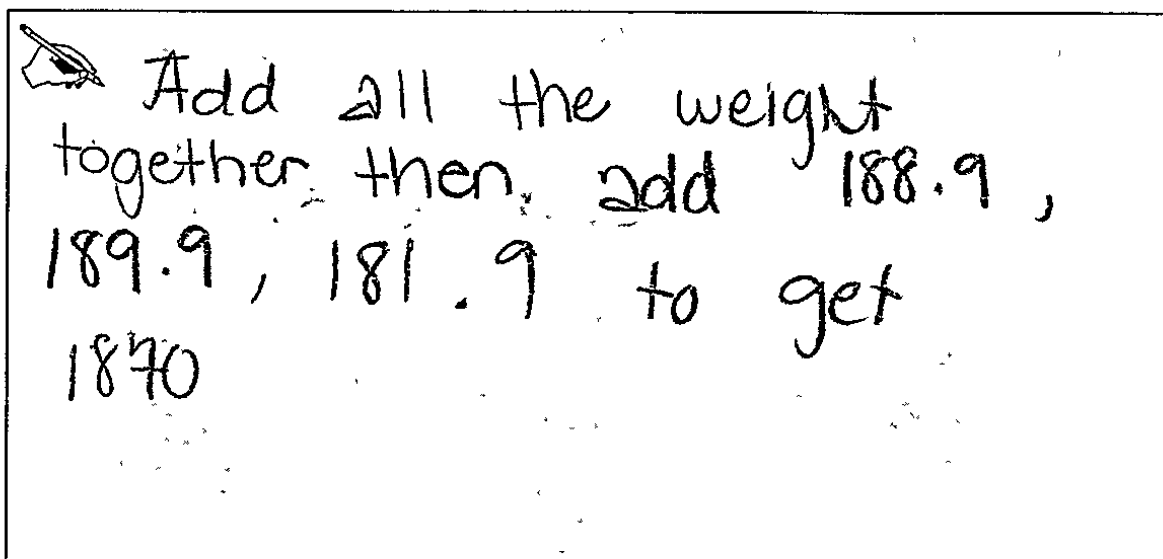 Add all the weight
together then add 188.9 ,
189.9 , 181 . 9 to get
1870